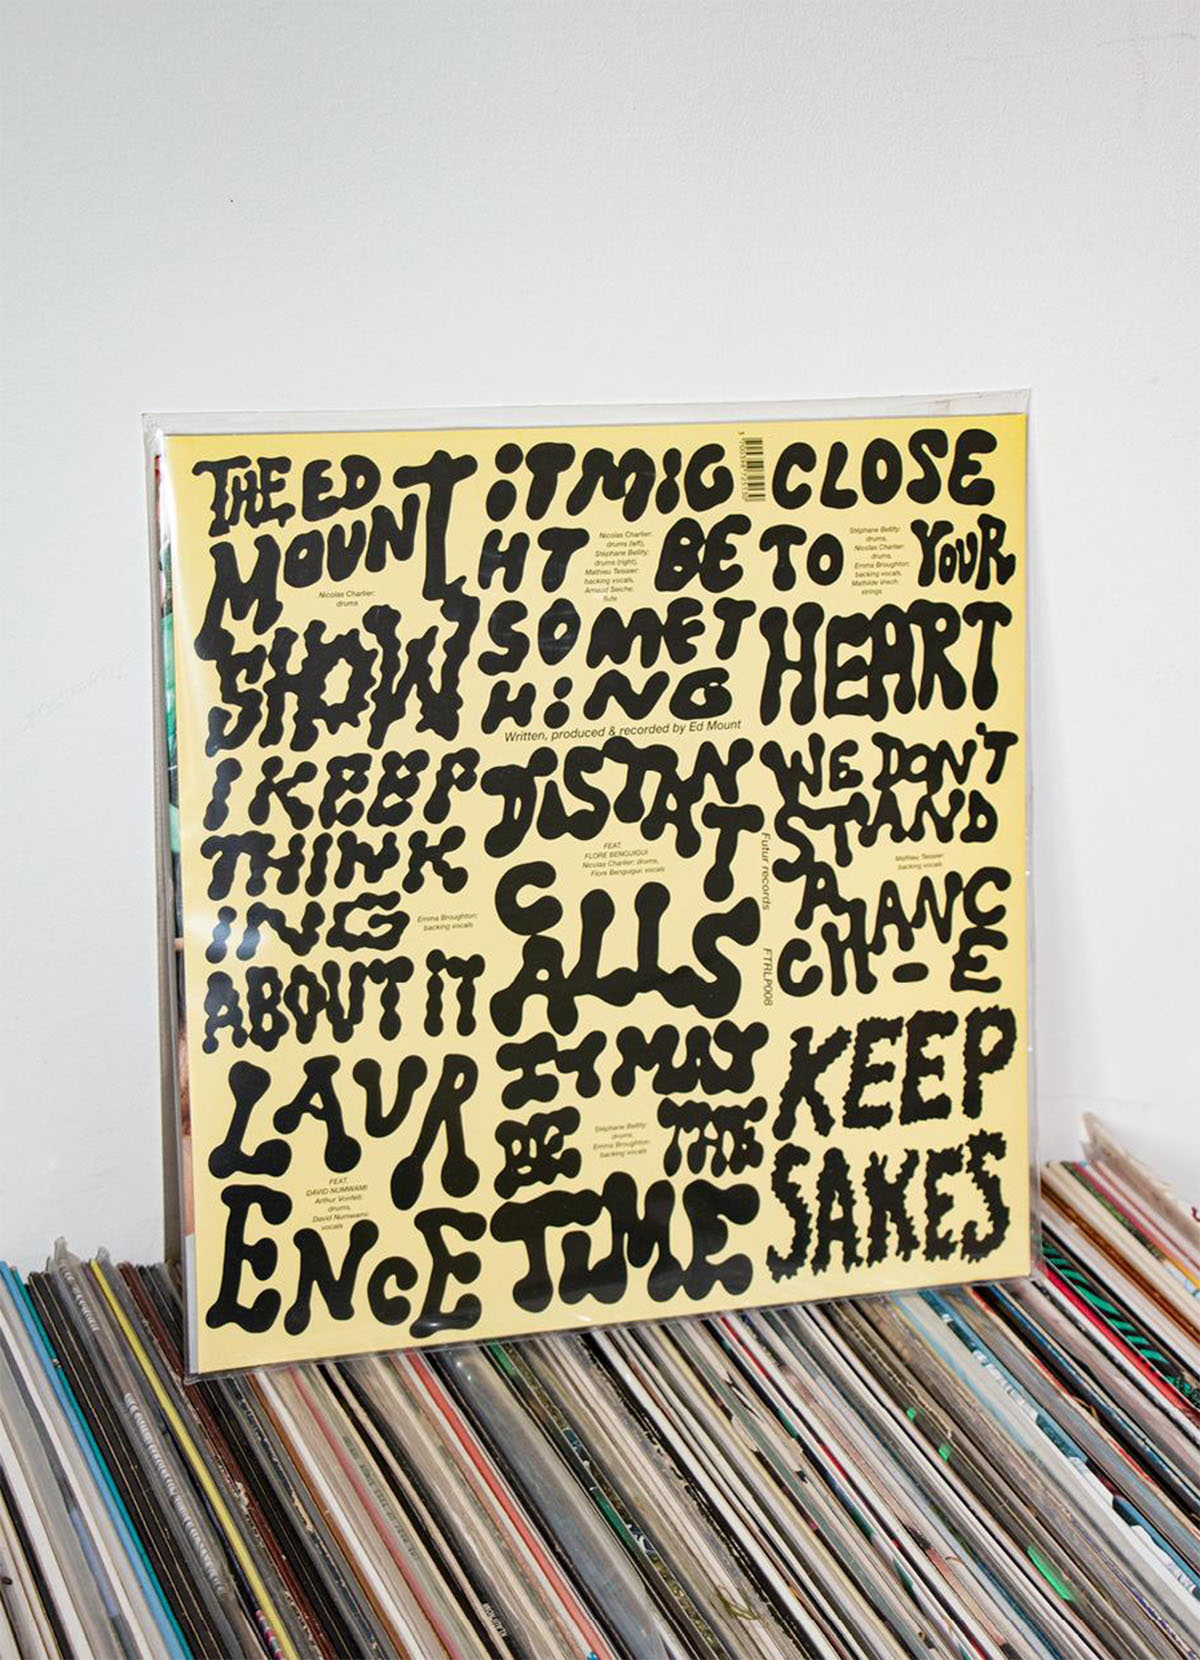 THE ED
MOUNT
Nicolas Charlier:
drums
SHOW
I KEEP
THINK
ING
Emma Broughton:
backing vocals
ABOUT IT
LAUR
FEAT.
DAVID NUMWAMI
Arthur Vonfelt:
drums,
David Numwami:
vocals
ENCE
iTMiG
HT BE
Nicolas Charlier:
drums (left),
Stéphane Bellity:
drums (right),
Mathieu Teissier:
backing vocals,
Arnaud Seiche:
flute
SOMET
HiNG
Written, produced & recorded by Ed Mount
DiSTAN
T
FEAT.
FLORE BENGUIGUI
Nicolas Charlier: drums,
Flore Benguigui: vocals
CALLS
IT MAY
BE THE
Stéphane Bellity:
drums,
Emma Broughton:
backing vocals
TiME
CLOSE
TO YOUR
Stéphane Bellity:
drums,
Nicolas Charlier:
drums,
Emma Broughton:
backing vocals,
strings
HEART
WE DON'T
STAND
Mathieu Teissier:
backing vocals
A
CHANC-E
Futur records
FTRLP008
KEEP
SAKES